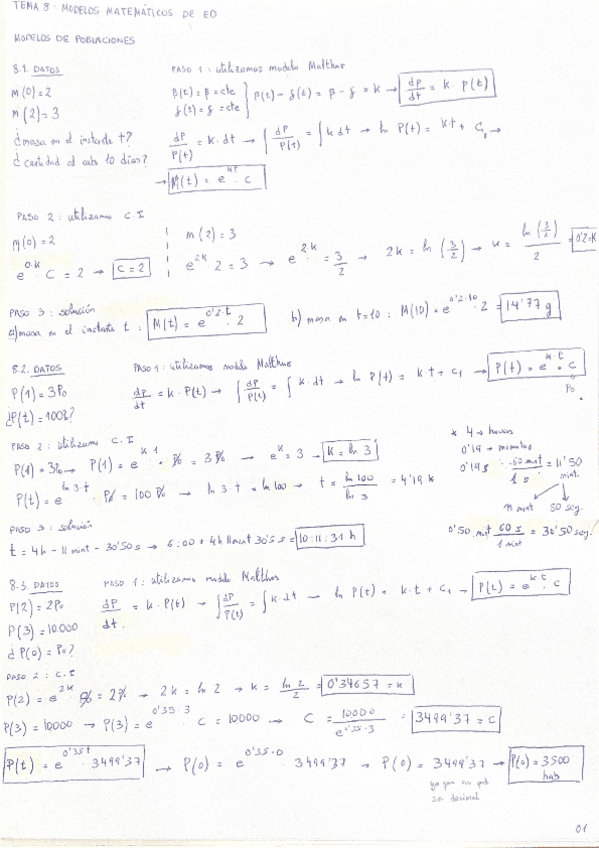 TEMA 8: MODELOS MATEMÁTICOS DE ED
MODELOS DE POBLACIONES
8.1. DATOS
m(0)=2
m(2)=3
¿masa en el instante t?
¿cantidad al cabo 10 días?
PASO 1: utilizamos modelo Malthus
β(t) = β = cte
δ(t) = δ = cte } β(t) - δ(t) = β - δ = k → dp/dt = k · p(t)
dP/P(t) = k · dt → ∫ dP/P(t) = ∫ k dt → ln P(t) = kt + C₁ →
→ M(t) = e^kt · C
PASO 2: utilizamos C.I
m(0)=2
e^0·k · C = 2 → C = 2
m(2)=3
e^2k · 2 = 3 → e^2·k = 3/2 → 2k = ln (3/2) → k = ln (3/2)/2 = 0'2=k
PASO 3: solución
a) masa en el instante t: M(t) = e^0'2·t · 2
b) masa en t=10: M(10) = e^0'2·10 · 2 = 14'77 g
8.2. DATOS
P(1) = 3P₀
¿P(t) = 100P₀?
PASO 1: utilizamos modelo Malthus
dp/dt = k · P(t) → ∫ dP/P(t) = ∫ k · dt → ln P(t) = kt + C₁ → P(t) = e^k·t · C
"
P₀
PASO 2: utilizamos C.I
P(1) = 3P₀ → P(1) = e^k·1 · P₀ = 3P₀ → e^k = 3 → k = ln 3
P(t) = e^ln 3·t · P₀ = 100 P₀ → ln 3 · t = ln 100 → t = ln 100/ln 3 = 4'19 h
* 4 → horas
0'19 → minutos
0'19 s · 60 mint/1 s = 11'50 mint.
11 mint 50 seg.
0'50 mint · 60 s/1 mint = 30'50 seg.
PASO 3: solución
t = 4h - 11 mint - 30'50 s → 6:00 + 4h 11 mint 30'5 s = 10:11:31 h
8.3 DATOS
P(2) = 2P₀
P(3) = 10.000
¿P(0) = P₀?
PASO 1: utilizamos modelo Malthus
dP/dt = k · P(t) → ∫ dP/P(t) = ∫ k · dt → ln P(t) = k·t + C₁ → P(t) = e^k·t · C
PASO 2: C.I
P(2) = e^2k · P₀ = 2P₀ → 2k = ln 2 → k = ln 2/2 = 0'34657 = k
P(3) = 10000 → P(3) = e^0'35·3 · C = 10000 → C = 10000/e^0'35·3 = 3499'37 = C
P(t) = e^0'35t · 3499'37 → P(0) = e^0'35·0 · 3499'37 → P(0) = 3499'37 → P(0) = 3500 hab
ya que no pued
ser decimal
01